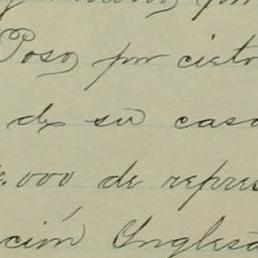 Poso, por cieto
de su casa
.000 de repres
ción Inglesa